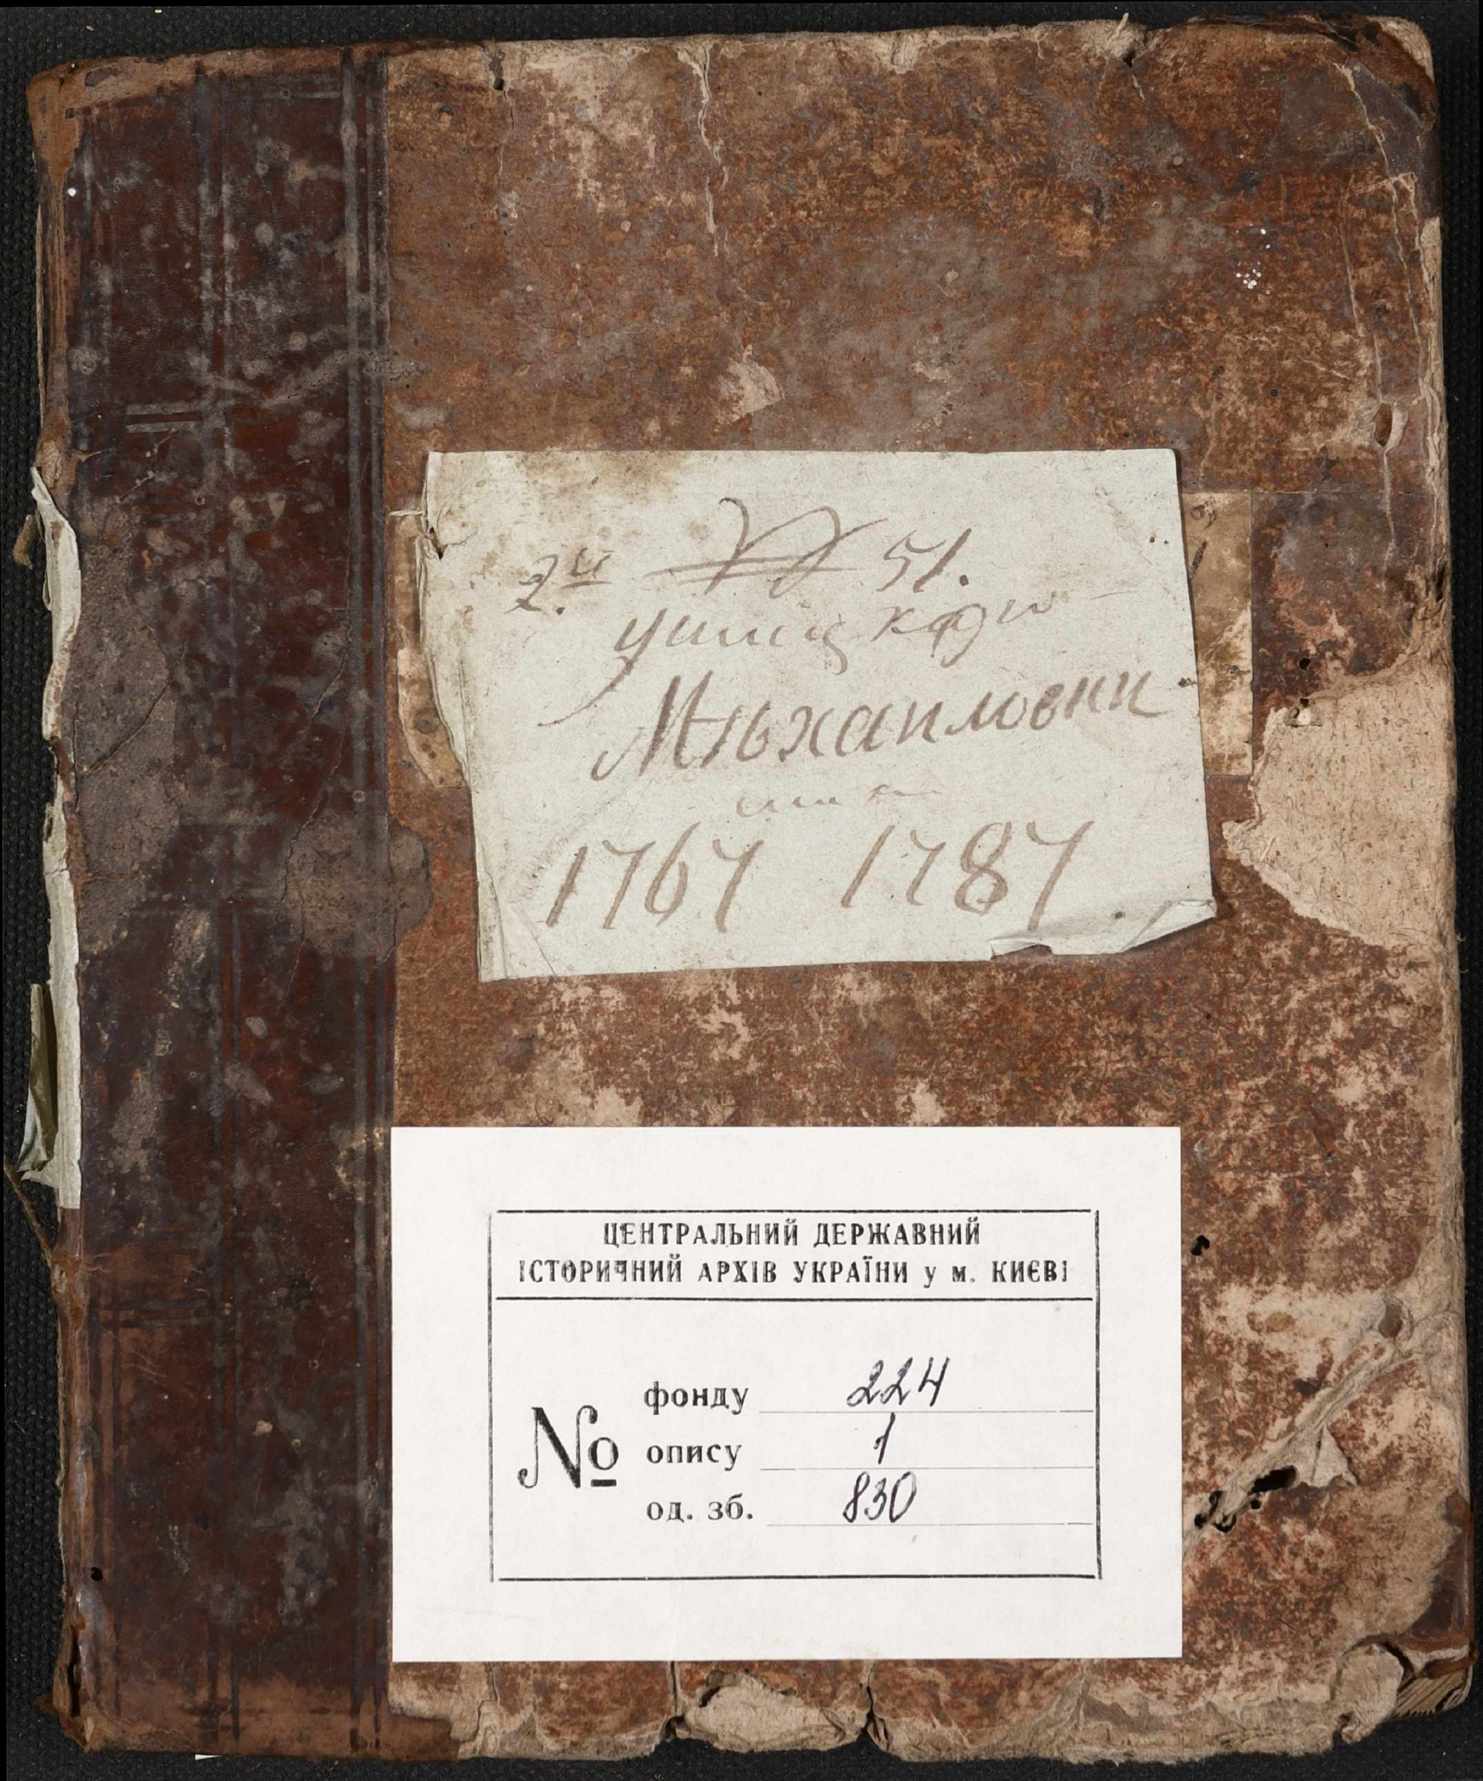 2.й 51.
Михайловки
1767 1787
ЦЕНТРАЛЬНИЙ ДЕРЖАВНИЙ
ІСТОРИЧНИЙ АРХІВ УКРАЇНИ у м. КИЄВІ
№
фонду 224
опису 1
од. зб. 830